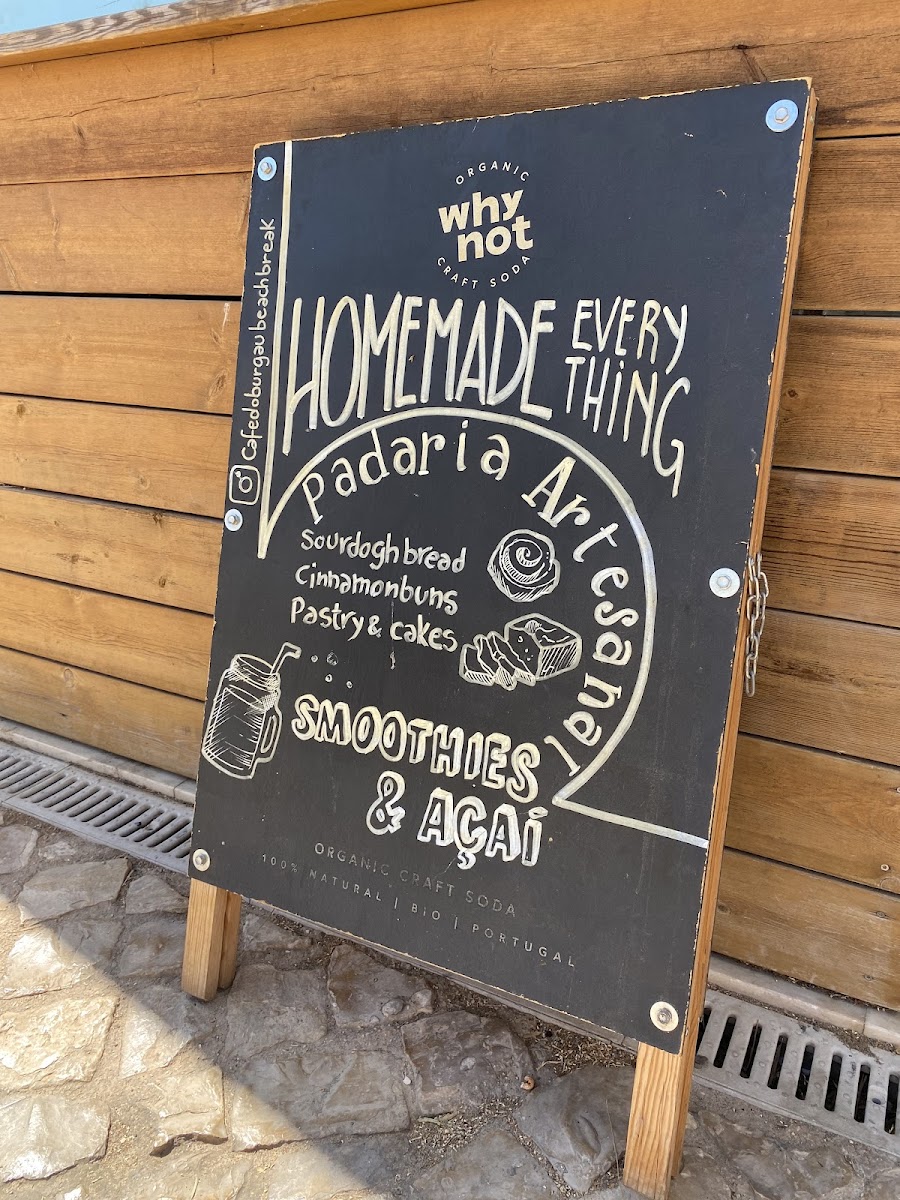 ORGANIC
why
not
CRAFT SODA
HOMEMADE EVERY
THING
Cafedoburgaubeachbreak
Padaria Artesanal
Sourdogh bread
Cinnamonbuns
Pastry & cakes
SMOOTHIES
& AÇAÍ
ORGANIC CRAFT SODA
100% NATURAL | BIO | PORTUGAL